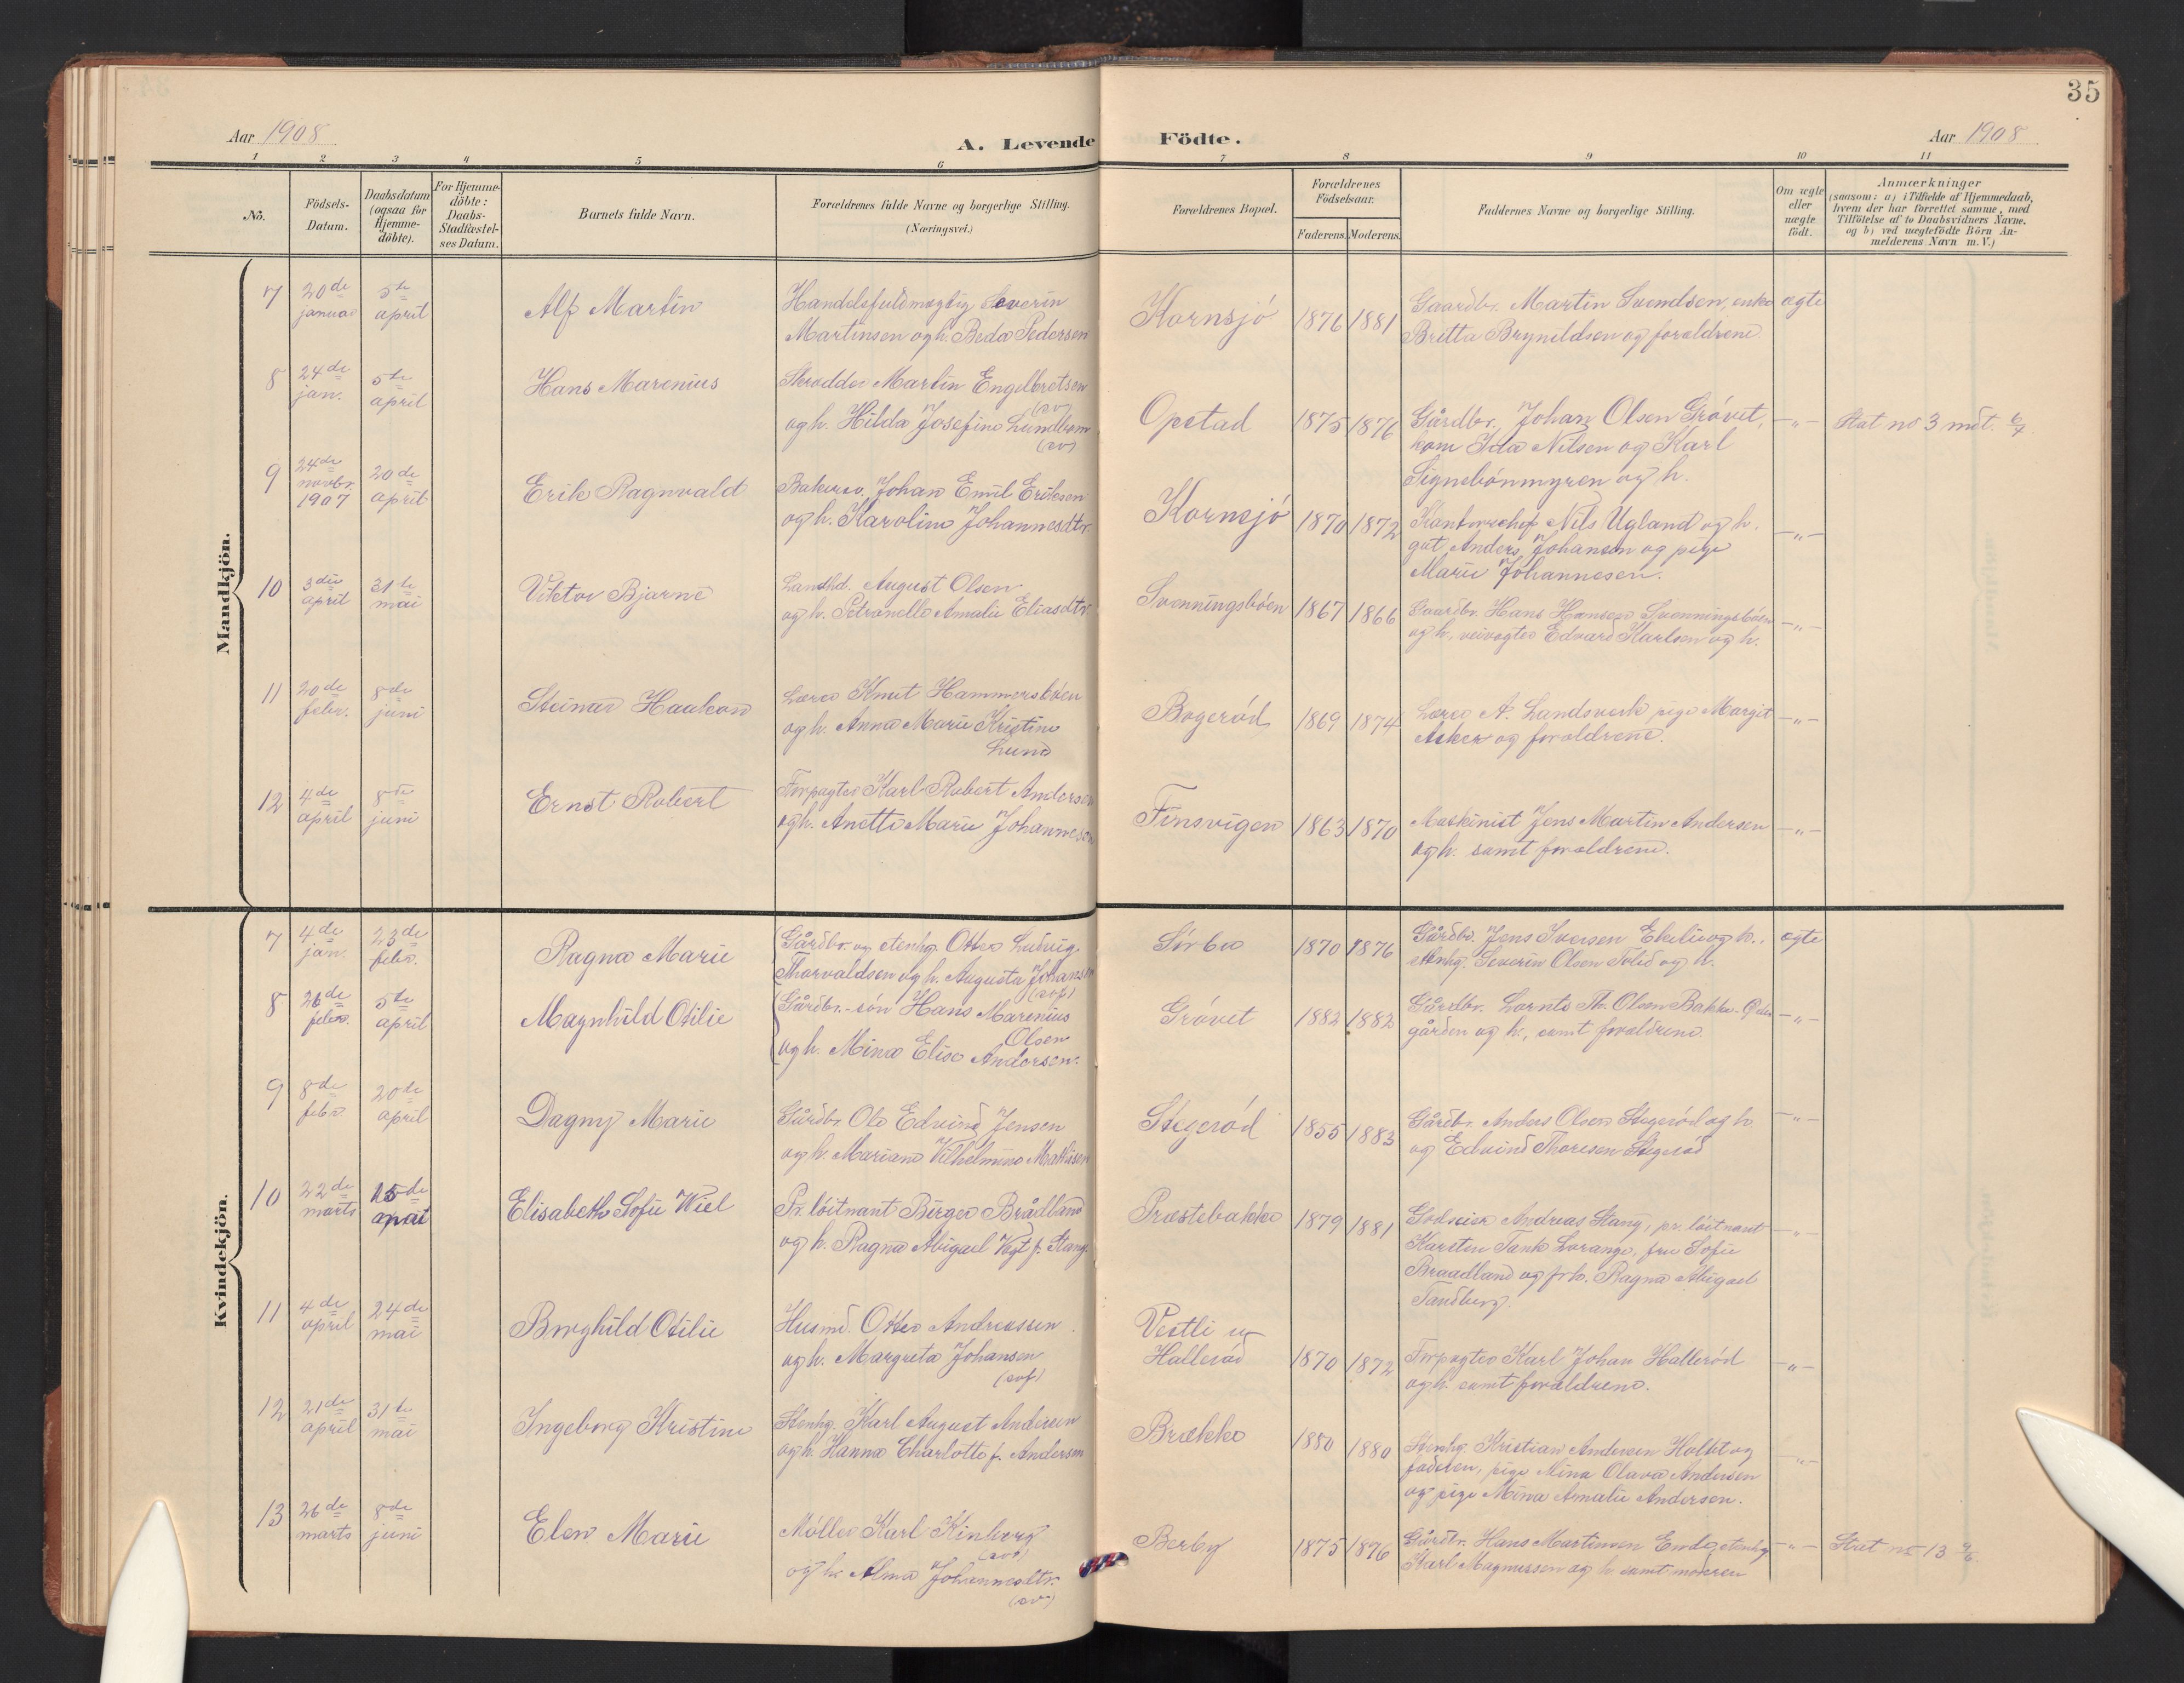 35
Aar 1908
A. Levende Födte.
Aar 1908
1 2 3 4 5 6 7 8 9 10 11
No.
Födsels-Datum.
Daabsdatum (ogsaa for Hjemme-döbte).
For Hjemme-döbte: Daabs-Stadfæstel-ses Datum.
Barnets fulde Navn.
Forældrenes fulde Navne og borgerlige Stilling. (Næringsvei.)
Forældrenes Bopæl.
Forældrenes Födselsaar.
Faderens. Moderens.
Faddernes Navne og borgerlige Stilling.
Om ægte eller uægte födt.
Anmærkninger
(saasom: a) i Tilfælde af Hjemmedaab,
hvem der har forrettet samme, med
Tilföielse af to Daabsvidners Navne.
og b) ved uægtefödte Börn An-
melderens Navn m. V.)
Mandkjön.
7 20de januar 5te april Alf Martin
Handelsfuldmægtig Severin
Martinsen og h. Beda Pedersen
Kornsjö 1876 1881
Gaardbr. Martin Svendsen, enke
Britta Bryneldsen og forældrene
ægte
8 24de jan. 5te april Hans Marenius
Skrædder Martin Engelbretsen
(sv)
og h. Hilda Josefine Lundbom
(sv)
Opstad 1875 1876
Gårdbr. Johan Olsen Grövet,
Ida Nilsen og Karl
Signebönmyren og h.
-"-
Stat no 3 mdt.
9 24de novbr. 1907 20de april Erik Ragnvald
Johan Emil Eriksen
og h. Karoline Johannesdtr.
Kornsjö 1870 1872
Kontorchef Nils Ugland og h.
gut Anders Johansen og pige
Marie Johannesen.
-"-
10 3die april 31te mai Viktor Bjarne
Landhd. August Olsen
og h. Petronelle Amalie Eliasdtr
Svenningsböen 1867 1866
Gaardbr. Hans Hansen Svenningsböen
og h., veivogter Edvard Karlsen og h.
-"-
11 20de febr. 8de juni Steinar Haakon
Lærer Knut Hammersböen
og h. Anna Marie Kristine
Lund
Bogeröd 1869 1874
Lærer A. Landsverk pige Margit
Asker og forældrene.
-"-
12 4de april 8de juni Ernst Robert
Forpagter Karl Robert Andersen
og h. Anette Marie Johannesen
Finsvigen 1863 1870
Maskinist Jens Martin Andersen
og h. samt forældrene.
-"-
Kvindekjön.
7 4de jan. 23de febr. Ragna Marie
Gårdbr. og stenhg. Otter Ludvig
Thorvaldsen og h. Augusta Johansen
(svf)
Sörbo 1870 1876
Gårdbr. Jens Iversen Ekelie og h.,
stenhg. Severin Olsen og h.
ægte
8 26de febr. 5te april Magnhild Otilie
Gårdbr.-sön Hans Marenius
Olsen
og h. Mina Elise Andersen.
Grövet 1882 1882
Gårdbr. Lornts Th. Olsen Bakke-
gården og h., samt forældrene.
-"-
9 8de febr 20de april Dagny Marie
Gårdbr. Ole Edvind Jensen
og h. Mariane Vilhelmine Mathisen
Stegeröd 1855 1883
Gårdbr. Anders Olsen Stegeröd og h
og Edvind Thoresen Stegeröd
-"-
10 22de marts 15de mai Elisabeth Sofie Wiel
Pr. löitnant Birger Brådland
og h. Ragna Abigael Vogt f. Stang.
Præstebakke 1879 1881
Godseier Andreas Stang, pr. löitnant
Karsten Tank Lorange, fru Sofie
Braadland og frk. Ragna Abigael
Tandberg.
-"-
11 4de april 24de mai Borghild Otilie
Husmd. Otter Andreassen
og h. Margreta Johansen
(svf)
Vestli u
Halleröd 1870 1872
Forpagter Karl Johan Halleröd
og h. samt forældrene.
-"-
12 21de april 31te mai Ingeborg Kristine
Stenhg. Karl August Andersen
og h. Hanna Charlotte f. Andersen
Brække 1880 1880
Stenhg. Kristian Andersen Holtet og
faderen, pige Mina Olava Andersen
og pige Mina Amalie Andersen.
-"-
13 26de marts 8de juni Elen Marie
Möller Karl Kinberg
(svv)
og h. Alma Johannesdtr.
(sv)
Berby 1875 1876
Gårdbr. Hans Martinsen Ende, stenhg
Karl Magnussen og h. samt moderen
-"-
Stat no 13